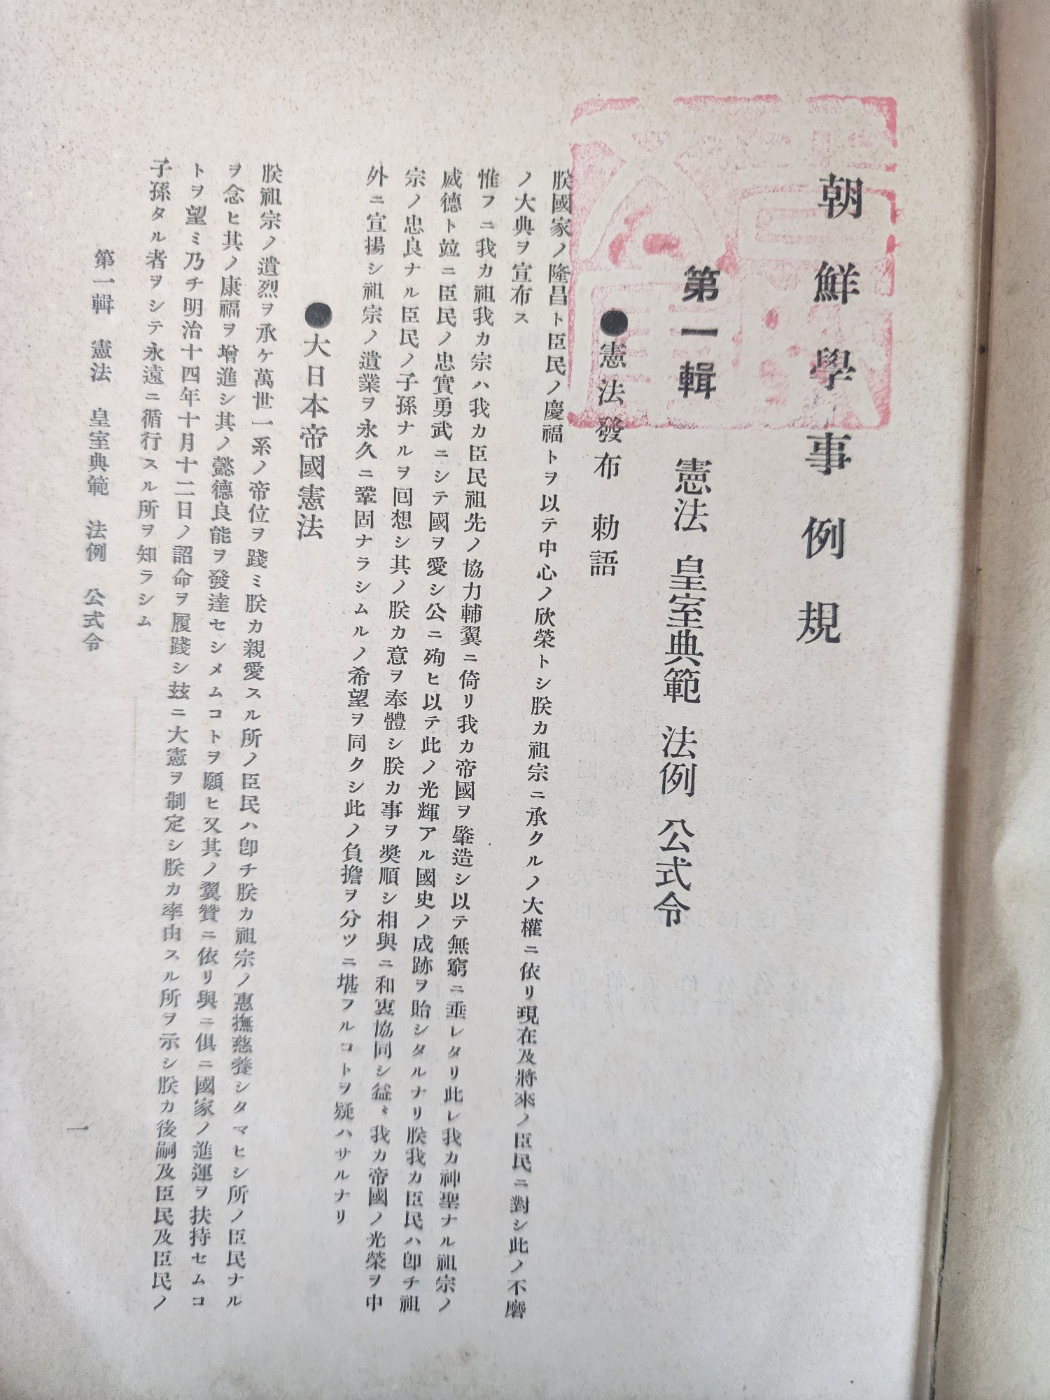 朝鮮學事例規
第一輯 憲法 皇室典範 法例 公式令
●憲法發布勅語
朕國家ノ隆昌ト臣民ノ慶福トヲ以テ中心ノ欣榮トシ朕カ祖宗ニ承クルノ大權ニ依リ現在及將來ノ臣民ニ對シ此ノ不磨
ノ大典ヲ宣布ス
惟フニ我カ祖我カ宗ハ我カ臣民祖先ノ協力輔翼ニ倚リ我カ帝國ヲ肇造シ以テ無窮ニ垂レタリ此レ我カ神聖ナル祖宗ノ
威德ト竝ニ臣民ノ忠實勇武ニシテ國ヲ愛シ公ニ殉ヒ以テ此ノ光輝アル國史ノ成跡ヲ貽シタルナリ朕我カ臣民ハ卽チ祖
宗ノ忠良ナル臣民ノ子孫ナルヲ囘想シ其ノ朕カ意ヲ奉體シ朕カ事ヲ奬順シ相與ニ和衷協同シ益〻我カ帝國ノ光榮ヲ中
外ニ宣揚シ祖宗ノ遺業ヲ永久ニ鞏固ナラシムルノ希望ヲ同クシ此ノ負擔ヲ分ツニ堪フルコトヲ疑ハサルナリ
●大日本帝國憲法
朕祖宗ノ遺烈ヲ承ケ萬世一系ノ帝位ヲ踐ミ朕カ親愛スル所ノ臣民ハ卽チ朕カ祖宗ノ惠撫慈養シタマヒシ所ノ臣民ナル
ヲ念ヒ其ノ康福ヲ增進シ其ノ懿德良能ヲ發達セシメムコトヲ願ヒ又其ノ翼贊ニ依リ與ニ俱ニ國家ノ進運ヲ扶持セムコ
トヲ望ミ乃チ明治十四年十月十二日ノ詔命ヲ履踐シ玆ニ大憲ヲ制定シ朕カ率由スル所ヲ示シ朕カ後嗣及臣民及臣民ノ
子孫タル者ヲシテ永遠ニ循行スル所ヲ知ラシム
第一輯 憲法 皇室典範 法例 公式令
一